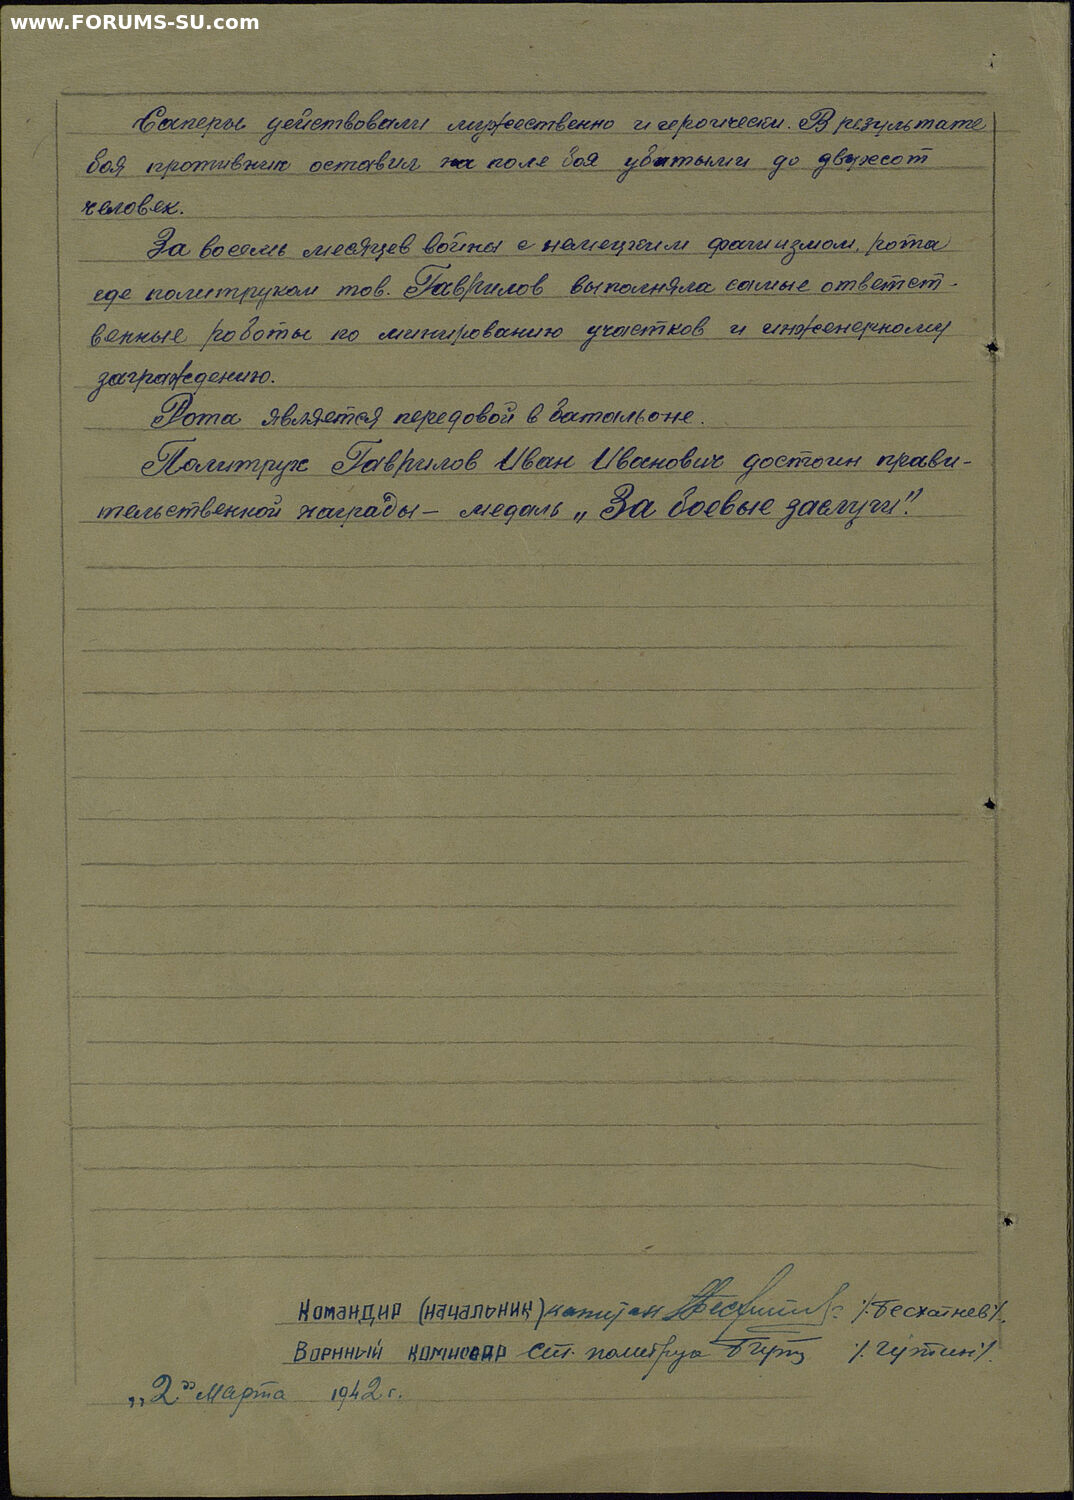 www.FORUMS-SU.com
Саперы действовали мужественно и героически. В результате
боя противник оставил на поле боя убитыми до двухсот
человек.
За восемь месяцев войны с немецким фашизмом, рота
где политруком тов. Гаврилов выполняла самые ответст-
венные работы по минированию участков и инженерному
заграждению.
Рота является передовой в батальоне.
Политрук Гаврилов Иван Иванович достоин прави-
тельственной награды — медаль „За боевые заслуги".
Командир (начальник) капитан /Бесхатнев/.
Военный комиссар ст. политрук
„2" марта 1942 г.